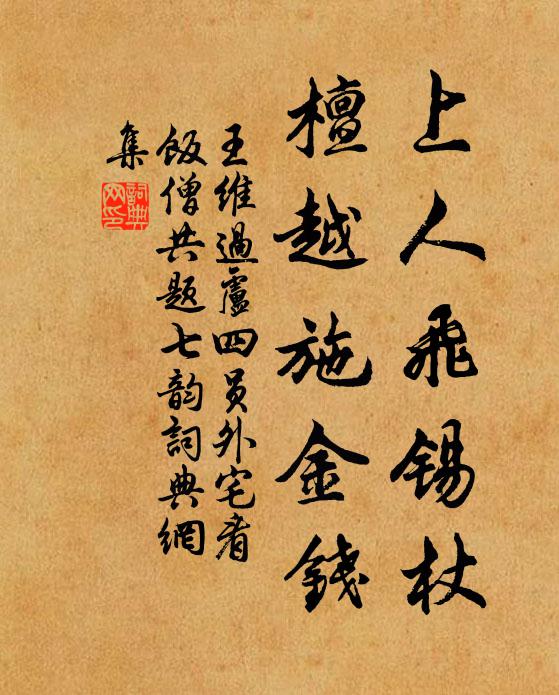 上人飛錫杖
檀越施金錢
王維過盧四員外宅看
飯僧共題七韵詞典網
集
詞典
网印